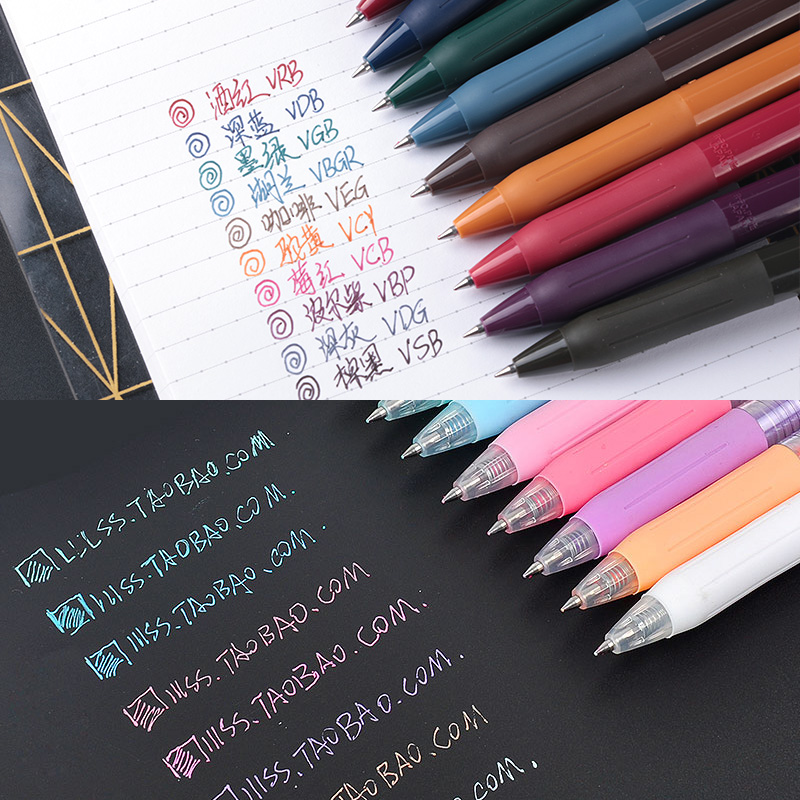 酒红 VRB
深蓝 VDB
墨绿 VGB
湖兰 VBGR
咖啡 VEG
橙黄 VCY
莓红 VCB
波尔紫 VBP
深灰 VDG
棕黑 VSB
lilss.TAOBAO.COM.
lilss.TAOBAO.COM.
lilss.TAOBAO.COM.
lilss.TAOBAO.COM
lilss.TAOBAO.COM.
lilss.TAOBAO.COM.
TAOBAO.COM
COM.